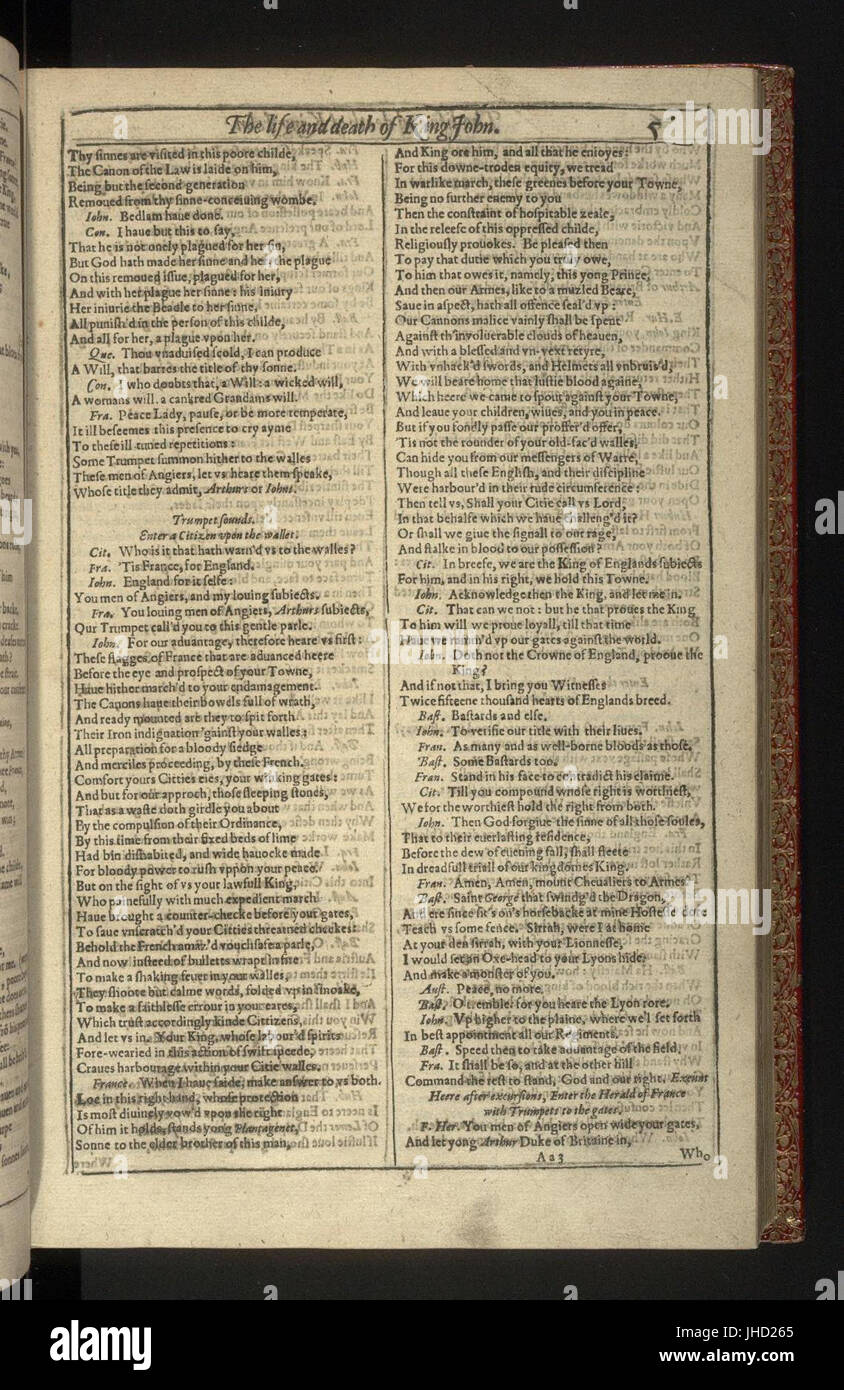 The life and death of King John.
5
Thy sinnes are visited in this poore childe,
The Canon of the Law is laide on him,
Being but the second generation
Remoued from thy sinne-conceiuing wombe.
Iohn. Bedlam haue done.
Con. I haue but this to say,
That he is not onely plagued for her sin,
But God hath made her sinne and her, the plague
On this remoued issue, plagued for her,
And with her plague her sinne: his iniury
Her iniurie the Beadle to her sinne,
All punish'd in the person of this childe,
And all for her, a plague vpon her.
Que. Thou vnaduised scold, I can produce
A Will, that barres the title of thy sonne.
Con. I who doubts that, a Will: a wicked will,
A womans will, a cankred Grandams will.
Fra. Peace Lady, pause, or be more temperate,
It ill beseemes this presence to cry ayme
To these ill-tuned repetitions:
Some Trumpet summon hither to the walles
These men of Angiers, let vs heare them speake,
Whose title they admit, Arthurs or Iohns.
Trumpet sounds.
Enter a Citizen vpon the walles.
Cit. Who is it that hath warn'd vs to the walles?
Fra. 'Tis France, for England.
Iohn. England for it selfe:
You men of Angiers, and my louing subiects.
Fra. You louing men of Angiers, Arthurs subiects,
Our Trumpet call'd you to this gentle parle.
Iohn. For our aduantage, therefore heare vs first:
These flagges of France that are aduanced heere
Before the eye and prospect of your Towne,
Haue hither march'd to your endamagement.
The Canons haue their bowels full of wrath,
And ready mounted are they to spit forth
Their Iron indignation 'gainst your walles:
All preparation for a bloody siedge
And merciles proceeding, by these French.
Comfort yours Citties eies, your winking gates:
And but for our approch, those sleeping stones,
That as a waste doth girdle you about
By the compulsion of their Ordinance,
By this time from their fixed beds of lime
Had bin dishabited, and wide hauocke made
For bloody power to rush vppon your peace.
But on the sight of vs your lawfull King,
Who painefully with much expedient march
Haue brought a counter-checke before your gates,
To saue vnscratch'd your Citties threatned cheekes:
Behold the French amaz'd vouchsafe a parle,
And now insteed of bulletts wrapt in fire
To make a shaking feuer in your walles,
They shoote but calme words, folded vp in smoake,
To make a faithlesse errour in your eares,
Which trust accordingly kinde Cittizens,
And let vs in. Your King, whose labour'd spirits
Fore-wearied in this action of swift speede,
Craues harbourage within your Citie walles.
France. When I haue saide, make answer to vs both.
Loe in this right hand, whose protection
Is most diuinely vow'd vpon the right
Of him it holds, stands yong Plantagenet,
Sonne to the elder brother of this man,
And King ore him, and all that he enioyes:
For this downe-troden equity, we tread
In warlike march, these greenes before your Towne,
Being no further enemy to you
Then the constraint of hospitable zeale,
In the releefe of this oppressed childe,
Religiously prouokes. Be pleased then
To pay that dutie which you truly owe,
To him that owes it, namely, this yong Prince,
And then our Armes, like to a muzled Beare,
Saue in aspect, hath all offence seal'd vp:
Our Cannons malice vainly shall be spent
Against th'involuerable clouds of heauen,
And with a blessed and vn-vext retyre,
With vnhack'd swords, and Helmets all vnbruis'd,
We will beare home that lustie blood againe,
Which heere we came to spout against your Towne,
And leaue your children, wiues, and you in peace.
But if you fondly passe our proffer'd offer,
'Tis not the rounder of your old-fac'd walles,
Can hide you from our messengers of Warre,
Though all these English, and their discipline
Were harbour'd in their rude circumference:
Then tell vs, Shall your Citie call vs Lord,
In that behalfe which we haue challeng'd it?
Or shall we giue the signall to our rage,
And stalke in blood to our possession?
Cit. In breefe, we are the King of Englands subiects
For him, and in his right, we hold this Towne.
Iohn. Acknowledge then the King, and let me in.
Cit. That can we not: but he that proues the King
To him will we proue loyall, till that time
Haue we ramm'd vp our gates against the world.
Iohn. Doth not the Crowne of England, prooue the
King?
And if not that, I bring you Witnesses
Twice fifteene thousand hearts of Englands breed.
Bast. Bastards and else.
Iohn. To verifie our title with their liues.
Fran. As many and as well-borne bloods as those.
Bast. Some Bastards too.
Fran. Stand in his face to contradict his claime.
Cit. Till you compound whose right is worthiest,
We for the worthiest hold the right from both.
Iohn. Then God forgiue the sinne of all those soules,
That to their euerlasting residence,
Before the dew of euening fall, shall fleete
In dreadfull triall of our kingdomes King.
Fran. Amen, Amen, mount Cheualiers to Armes.
Bast. Saint George that swindg'd the Dragon,
And ere since sit's on's horsebacke at mine Hostesse dore
Teach vs some fence. Sirrah, were I at home
At your den sirrah, with your Lionnesse,
I would set an Oxe-head to your Lyons hide,
And make a monster of you.
Aust. Peace, no more.
Bast. O tremble: for you heare the Lyon rore.
Iohn. Vp higher to the plaine, where we'l set forth
In best appointment all our Regiments.
Bast. Speed then to take aduantage of the field.
Fra. It shall be so, and at the other hill
Command the rest to stand, God and our right. Exeunt
Heere after excursions, Enter the Herald of France
with Trumpets to the gates.
F. Her. You men of Angiers open wide your gates,
And let yong Arthur Duke of Britaine in,
Aa3
Who
alamy
Image ID: JHD265
www.alamy.com